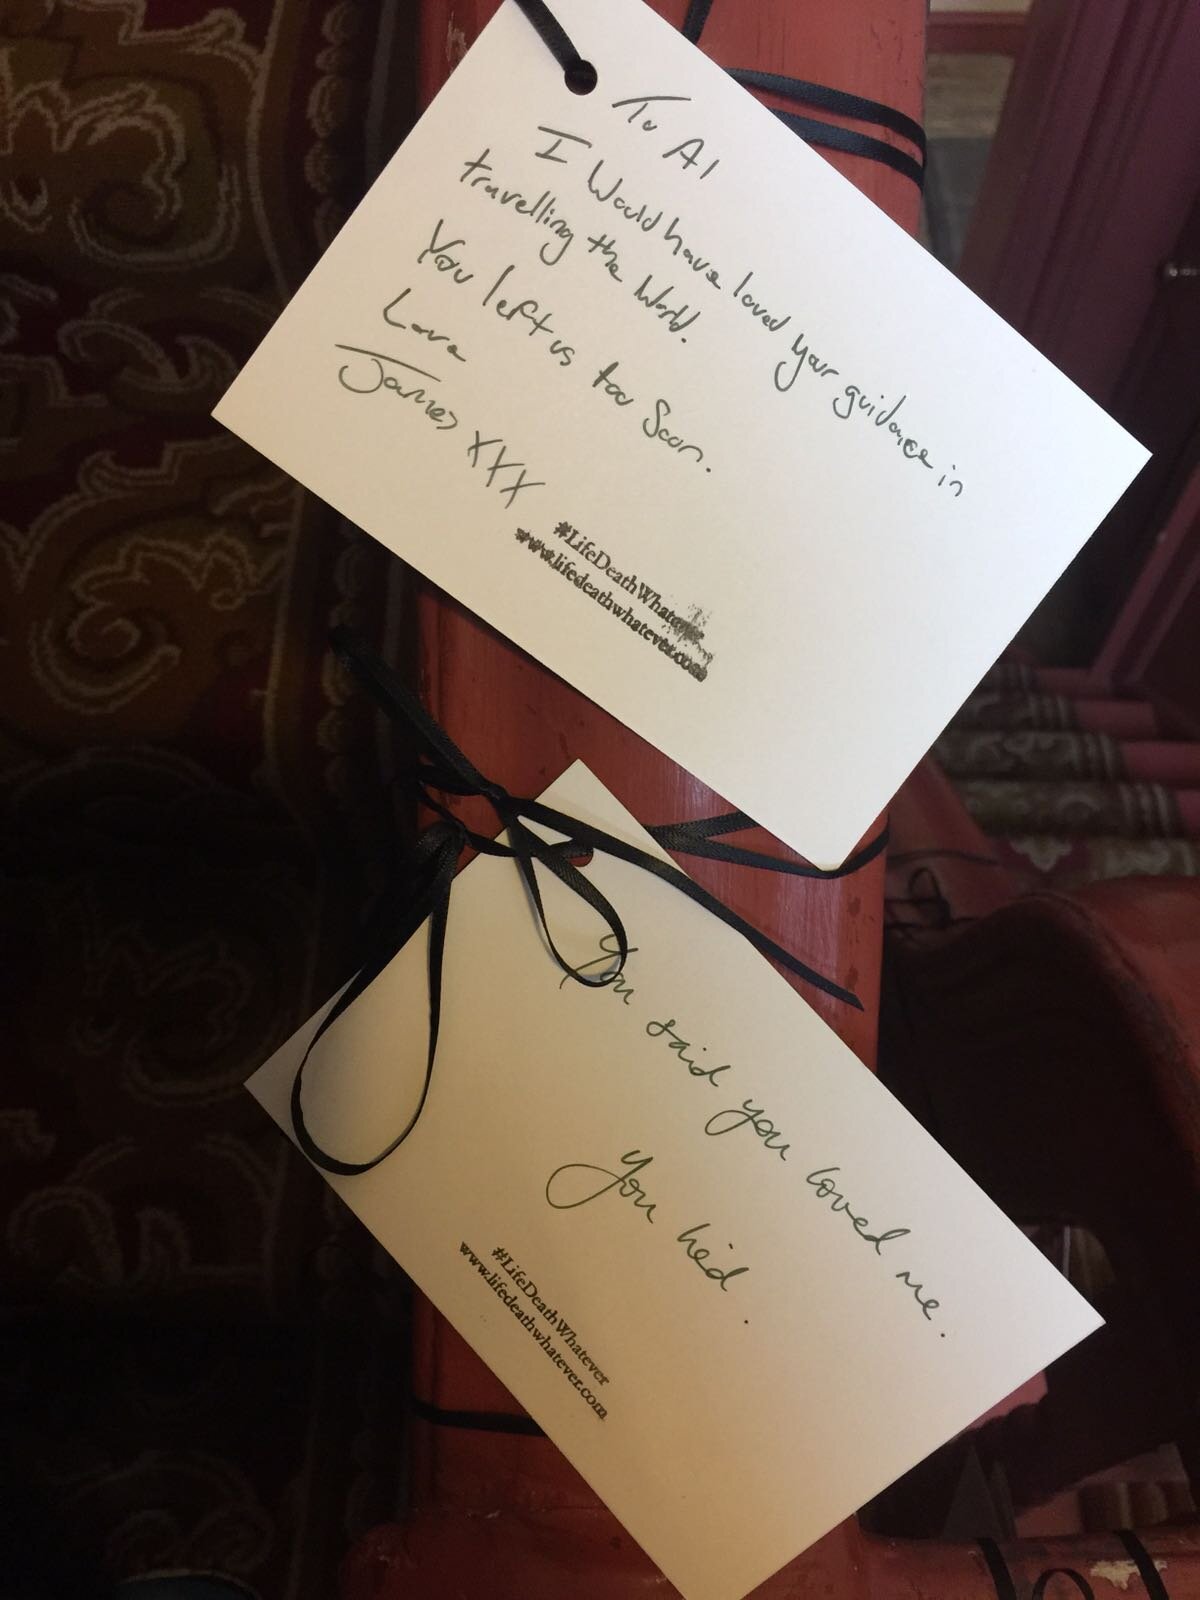 To Al
I Would have loved your guidance in
travelling the World.
You left us too Soon.
Love
James XXX
#LifeDeathWhatever
www.lifedeathwhatever.com
You said you loved me.
You lied.
#LifeDeathWhatever
www.lifedeathwhatever.com